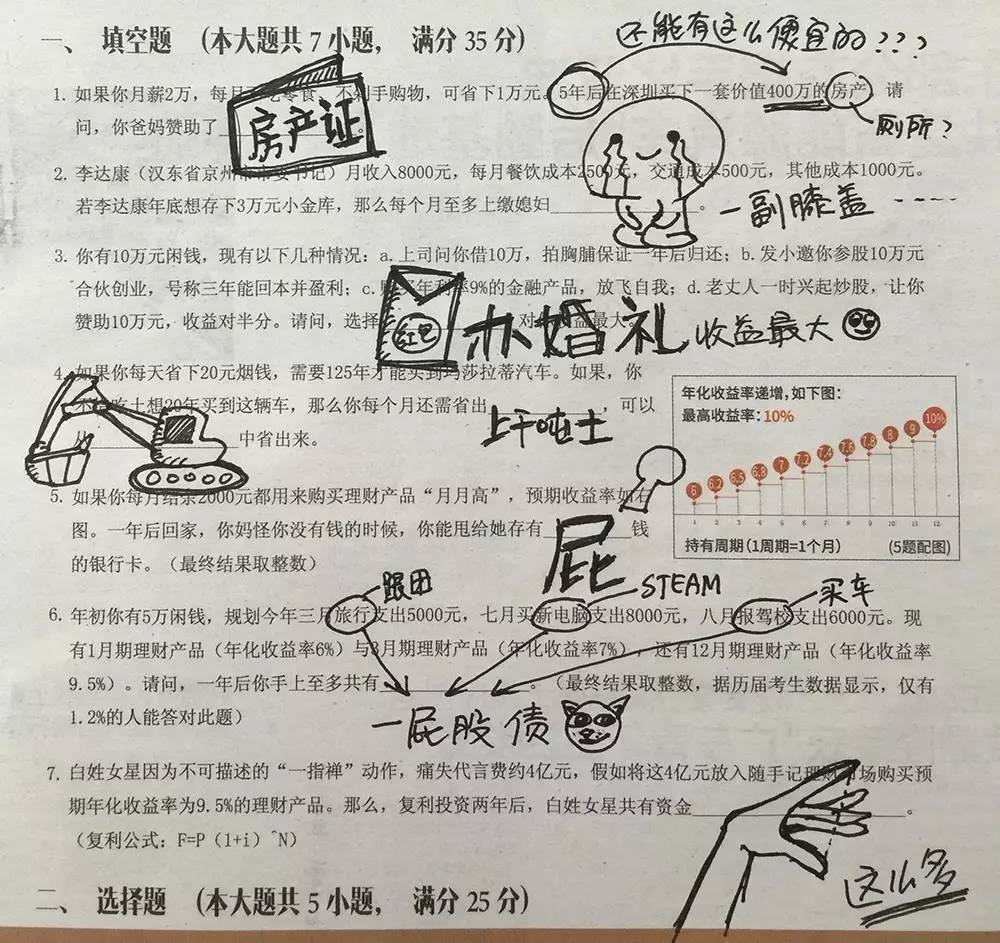 一、 填空题 (本大题共 7 小题, 满分 35 分)
还能有这么便宜的???
1. 如果你月薪2万，每月 零食、不剁手购物，可省下1万元。5年后在深圳买下一套价值400万的房产，请
问，你爸妈赞助了 。
房产证
厕所?
2. 李达康（汉东省京州市市委书记）月收入8000元，每月餐饮成本2500元，交通成本500元，其他成本1000元。
若李达康年底想存下3万元小金库，那么每个月至多上缴媳妇 。
一副膝盖
3. 你有10万元闲钱，现有以下几种情况：a.上司问你借10万，拍胸脯保证一年后归还；b.发小邀你参股10万元
合伙创业，号称三年能回本并盈利；c. 年利率9%的金融产品，放飞自我；d.老丈人一时兴起炒股，让你
赞助10万元，收益对半分。请问，选择 对 益最大。
红包
办婚礼 收益最大
4. 如果你每天省下20元烟钱，需要125年才能买到玛莎拉蒂汽车。如果，你
吃土想20年买到这辆车，那么你每个月还需省出 ，可以
从 中省出来。
上千吨土
年化收益率递增，如下图：
最高收益率：10%
6 6.2 6.5 6.8 7 7.2 7.4 7.6 7.8 8 9 10%
1 2 3 4 5 6 7 8 9 10 11 12
持有周期(1周期=1个月) (5题配图)
5. 如果你每月结余2000元都用来购买理财产品“月月高”，预期收益率如右
图。一年后回家，你妈怪你没有钱的时候，你能甩给她存有 钱
的银行卡。（最终结果取整数）
屁
跟团 STEAM 买车
6. 年初你有5万闲钱，规划今年三月旅行支出5000元，七月买新电脑支出8000元，八月报驾校支出6000元。现
有1月期理财产品（年化收益率6%）与3月期理财产品（年化收益率7%），还有12月期理财产品（年化收益率
9.5%）。请问，一年后你手上至多共有 。（最终结果取整数，据历届考生数据显示，仅有
1.2%的人能答对此题）
一屁股债
7. 白姓女星因为不可描述的“一指禅”动作，痛失代言费约4亿元，假如将这4亿元放入随手记理财市场购买预
期年化收益率为9.5%的理财产品。那么，复利投资两年后，白姓女星共有资金 。
（复利公式：F=P（1+i）^N）
这么多
二、 选择题 (本大题共 5 小题, 满分 25 分)